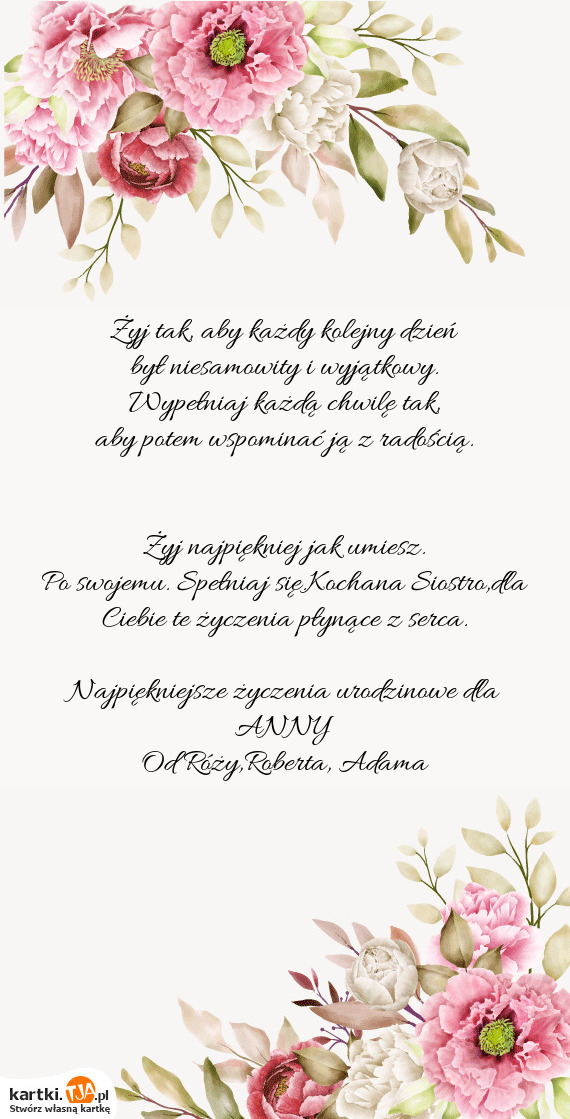 Żyj tak, aby każdy kolejny dzień
był niesamowity i wyjątkowy.
Wypełniaj każdą chwilę tak,
aby potem wspominać ją z radością.
Żyj najpiękniej jak umiesz.
Po swojemu. Spełniaj się.Kochana Siostro,dla
Ciebie te życzenia płynące z serca.
Najpiękniejsze życzenia urodzinowe dla
ANNY
Od Róży,Roberta, Adama
kartki.TJA.pl
Stwórz własną kartkę